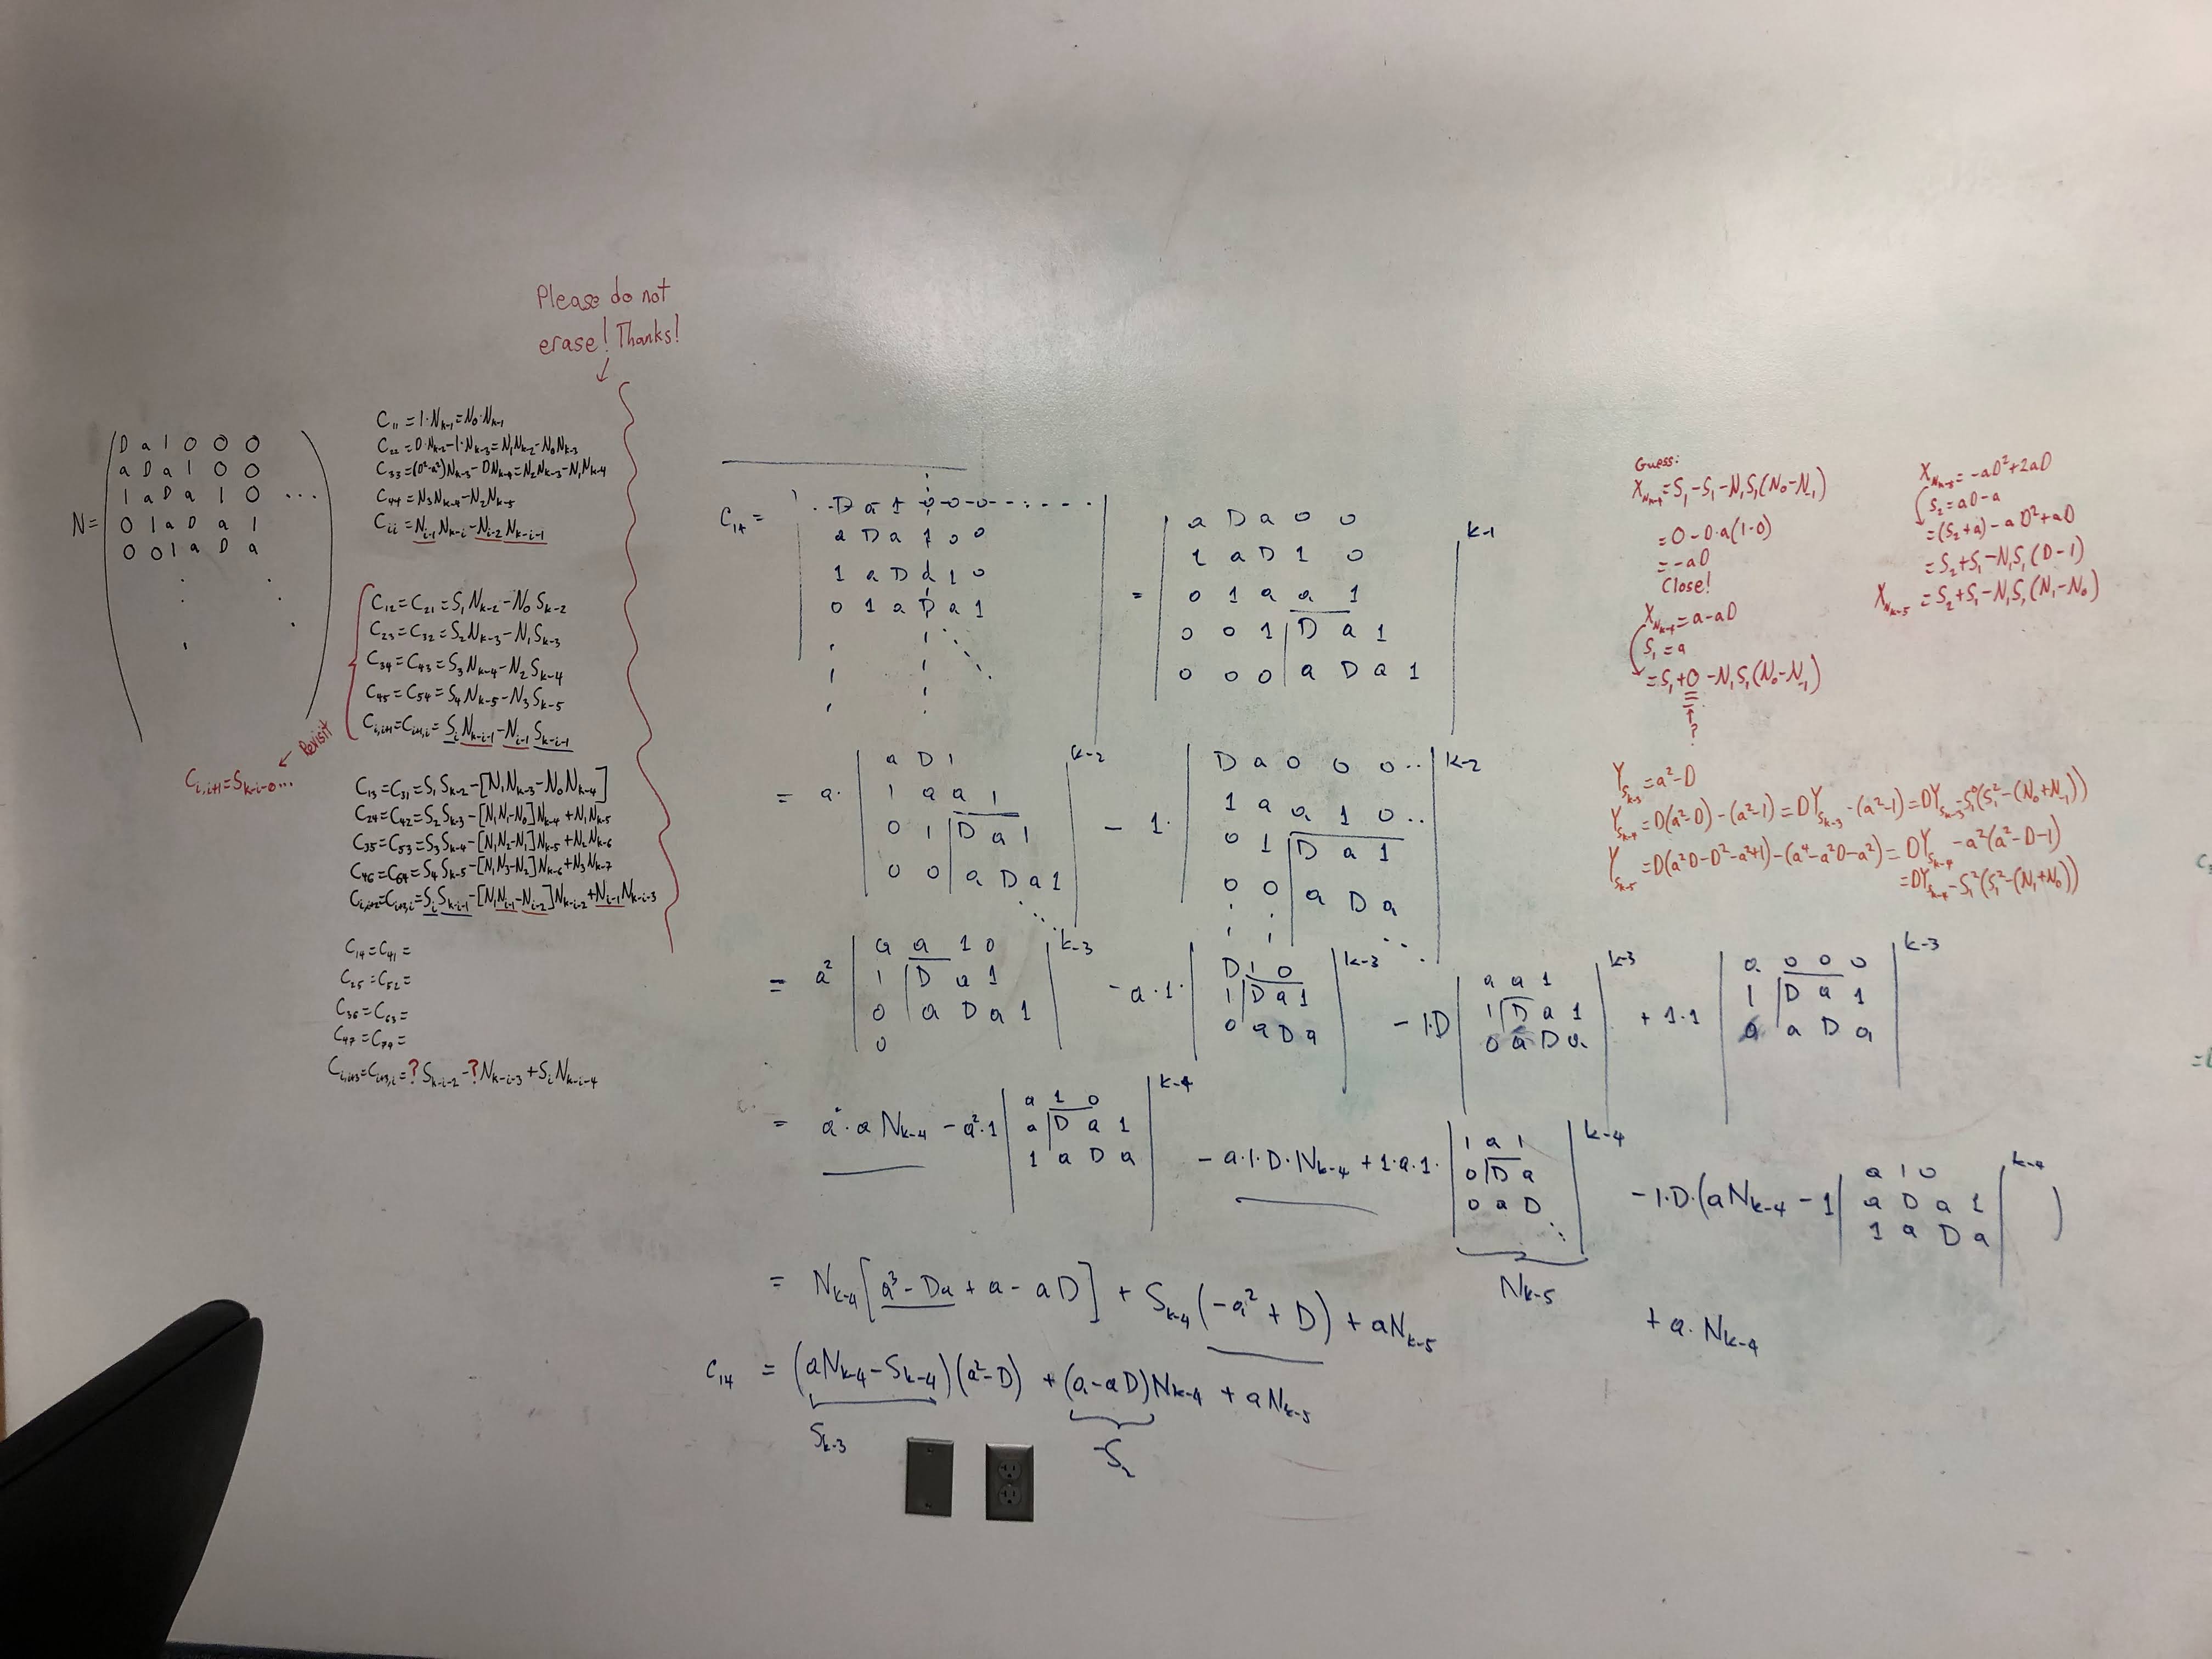 Please do not
erase! Thanks!
N=
D a 1 0 0 0
a D a 1 0 0
1 a D a 1 0 ...
0 1 a D a 1
0 0 1 a D a
C₁₁ = 1·Nₖ₋₁ = N₀·Nₖ₋₁
C₂₂ = D·Nₖ₋₂ - 1·Nₖ₋₃ = N₁Nₖ₋₂ - N₀Nₖ₋₃
C₃₃ = (D²-a²)Nₖ₋₃ - DNₖ₋₄ = N₂Nₖ₋₃ - N₁Nₖ₋₄
C₄₄ = N₃Nₖ₋₄ - N₂Nₖ₋₅
Cᵢᵢ = Nᵢ₋₁Nₖ₋ᵢ - Nᵢ₋₂Nₖ₋ᵢ₋₁
C₁₂ = C₂₁ = S₁Nₖ₋₂ - N₀Sₖ₋₂
C₂₃ = C₃₂ = S₂Nₖ₋₃ - N₁Sₖ₋₃
C₃₄ = C₄₃ = S₃Nₖ₋₄ - N₂Sₖ₋₄
C₄₅ = C₅₄ = S₄Nₖ₋₅ - N₃Sₖ₋₅
Cᵢ,ᵢ₊₁ = Cᵢ₊₁,ᵢ = SᵢNₖ₋ᵢ₋₁ - Nᵢ₋₁Sₖ₋ᵢ₋₁
Revisit
Cᵢ,ᵢ₊₁ = Sₖ₋ᵢ₋₀...
C₁₃ = C₃₁ = S₁Sₖ₋₂ - [N₁Nₖ₋₃ - N₀Nₖ₋₄]
C₂₄ = C₄₂ = S₂Sₖ₋₃ - [N₁N₁ - N₀]Nₖ₋₄ + N₁Nₖ₋₅
C₃₅ = C₅₃ = S₃Sₖ₋₄ - [N₁N₂ - N₁]Nₖ₋₅ + N₂Nₖ₋₆
C₄₆ = C₆₄ = S₄Sₖ₋₅ - [N₁N₃ - N₂]Nₖ₋₆ + N₃Nₖ₋₇
Cᵢ,ᵢ₊₂ = Cᵢ₊₂,ᵢ = SᵢSₖ₋ᵢ₋₁ - [N₁Nᵢ₋₁ - Nᵢ₋₂]Nₖ₋ᵢ₋₂ + Nᵢ₋₁Nₖ₋ᵢ₋₃
C₁₄ = C₄₁ =
C₂₅ = C₅₂ =
C₃₆ = C₆₃ =
C₄₇ = C₇₄ =
Cᵢ,ᵢ₊₃ = Cᵢ₊₃,ᵢ = ? Sₖ₋ᵢ₋₂ - ? Nₖ₋ᵢ₋₃ + SᵢNₖ₋ᵢ₋₄
C₁₄ =
D a 1 0 0 0
a D a 1 0 0
1 a D a 1 0
0 1 a D a 1
=
a D a 0 0
1 a D 1 0
0 1 a a 1
0 0 1 D a 1
0 0 0 a D a 1
k-1
= a·
a D 1
1 a a 1
0 1 D a 1
0 0 a D a 1
k-2
- 1·
D a 0 0 0 ..
1 a a 1 0 ..
0 1 D a 1
0 0 a D a
k-2
= a²
a a 1 0
1 D a 1
0 a D a 1
0
k-3
- a·1·
D 1 0
1 D a 1
0 a D a
k-3
- 1·D
a a 1
1 D a 1
0 a D a
k-3
+ 1·1
a 0 0 0
1 D a 1
a D a
k-3
= a²·a Nₖ₋₄ - a²·1
a 1 0
a D a 1
1 a D a
k-4
- a·1·D·Nₖ₋₄ + 1·a·1·
1 a 1
0 D a
0 a D
k-4
Nₖ₋₅
- 1·D·(aNₖ₋₄ - 1
a 1 0
a D a 1
1 a D a
k-4
)
+ a·Nₖ₋₄
= Nₖ₋₄[a³ - Da + a - aD] + Sₖ₋₄(-a² + D) + aNₖ₋₅
C₁₄ = (aNₖ₋₄ - Sₖ₋₄)(a² - D) + (a - aD)Nₖ₋₄ + aNₖ₋₅
Sₖ₋₃
-S₂
Guess:
X_Nₖ₋₄ = S₁ - S₁ - N₁S₁(N₀ - N₋₁)
= 0 - D·a(1-0)
= -aD
Close!
X_Nₖ₋₄ = a - aD
S₁ = a
= S₁ + 0 - N₁S₁(N₀ - N₋₁)
?
X_Nₖ₋₅ = -aD² + 2aD
S₂ = aD - a
= (S₂ + a) - aD² + aD
= S₂ + S₁ - N₁S₁(D - 1)
X_Nₖ₋₅ = S₂ + S₁ - N₁S₁(N₁ - N₀)
Y_Sₖ₋₃ = a² - D
Y_Sₖ₋₄ = D(a² - D) - (a² - 1) = DY_Sₖ₋₃ - (a² - 1) = DY_Sₖ₋₃ - S₁⁰(S₁² - (N₀ + N₋₁))
Y_Sₖ₋₅ = D(a²D - D² - a² + 1) - (a⁴ - a²D - a²) = DY_Sₖ₋₄ - a²(a² - D - 1)
= DY_Sₖ₋₄ - S₁²(S₁² - (N₁ + N₀))